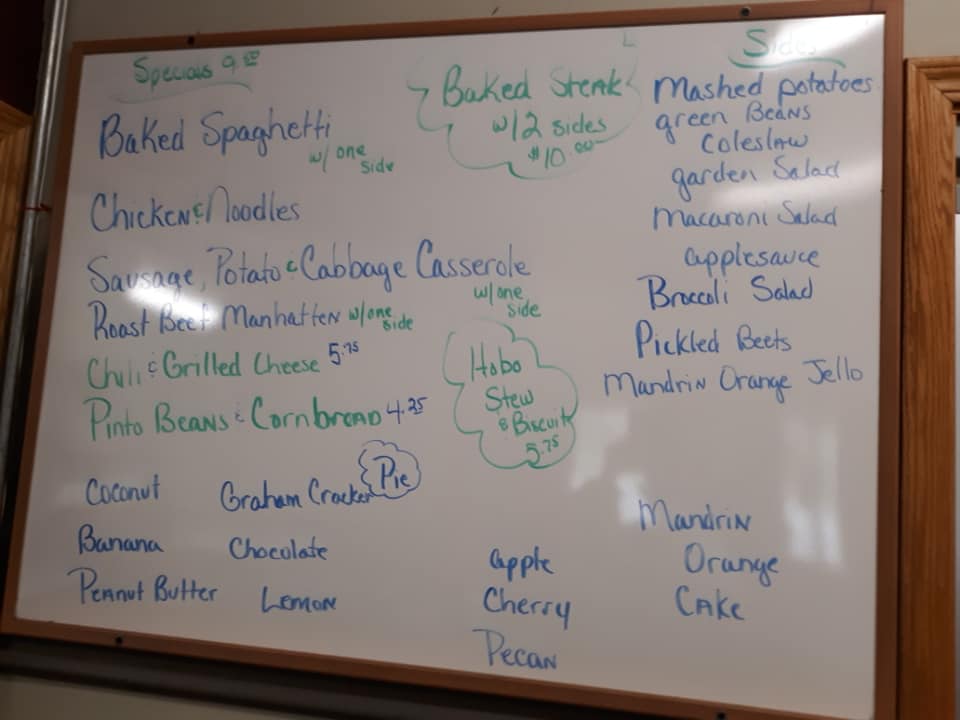 Specials 9.00
Baked Spaghetti
w/ one
side
Chicken & Noodles
Sausage, Potato & Cabbage Casserole
w/one
side
Roast Beef Manhatten w/one
side
Chili & Grilled Cheese 5.75
Pinto Beans & Cornbread 4.25
Baked Steak
w/2 sides
$10.00
Hobo
Stew
& Biscuit
5.75
Sides
Mashed potatoes
green Beans
Coleslaw
garden Salad
Macaroni Salad
applesauce
Broccoli Salad
Pickled Beets
Mandrin Orange Jello
Pie
Coconut
Graham Cracker
Banana
Chocolate
Peanut Butter
Lemon
apple
Cherry
Pecan
Mandrin
Orange
Cake